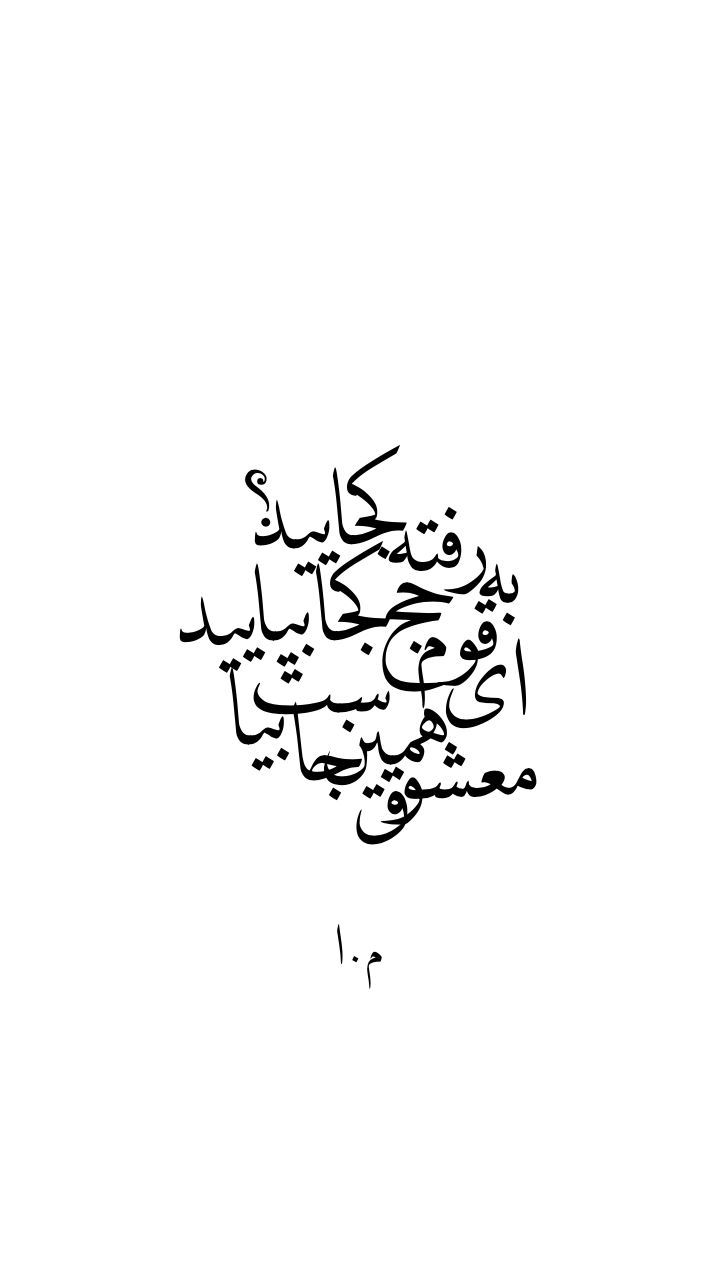 ای قوم به حج رفته کجا کجایید؟
معشوق همین جاست بیا بیایید
م.ا